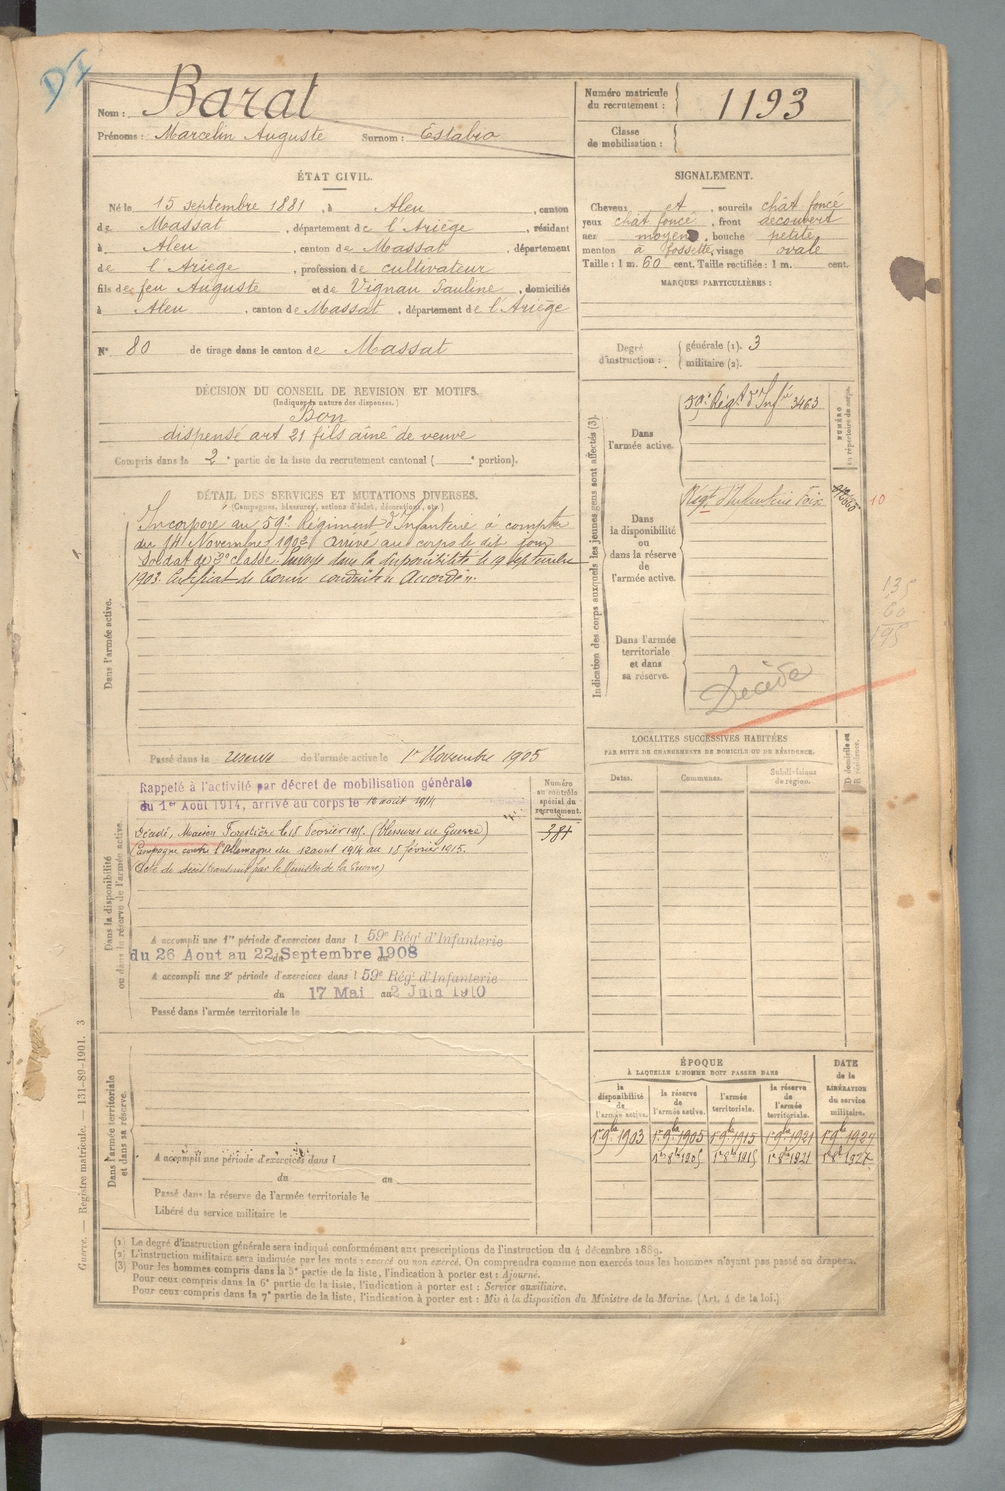 D I
Nom : Barat
Prénoms : Marcelin Auguste Surnom : Estabio
Numéro matricule
du recrutement : 1193
Classe
de mobilisation :
ÉTAT CIVIL.
Né le 15 septembre 1881, à Aleu, canton
de Massat, département de l'Ariège, résidant
à Aleu, canton de Massat, département
de l'Ariege, profession de cultivateur
fils de feu Auguste et de Vignau Pauline, domiciliés
à Aleu, canton de Massat, département de l'Ariège
N° 80 de tirage dans le canton de Massat
SIGNALEMENT.
Cheveux et, sourcils chât foncé
yeux chât foncé, front decouvert
nez moyen, bouche petite
menton à fossette, visage ovale
Taille : 1 m. 60 cent. Taille rectifiée : 1 m. cent.
MARQUES PARTICULIÈRES :
Degré
d'instruction :
générale (1). 3
militaire (2).
DÉCISION DU CONSEIL DE REVISION ET MOTIFS.
(Indiquer la nature des dispenses.)
Bon
dispensé art 21 fils aîné de veuve
Compris dans la 2e partie de la liste du recrutement cantonal ( e portion).
DÉTAIL DES SERVICES ET MUTATIONS DIVERSES.
(Campagnes, blessures, actions d'éclat, décorations, etc.)
Dans l'armée active.
Incorporé au 59e Régiment d'Infanterie à compter
du 14 Novembre 1902 arrivé au corps le dit jour
Soldat de 2e classe. Envoyé dans la disponibilité le 19 septembre
1903. Certificat de bonne conduite Accordé.
Passé dans la reserve de l'armée active le 1er Novembre 1905
Indication des corps auxquels les jeunes gens sont affectés (3).
NUMÉRO
au répertoire du corps.
Dans
l'armée active.
59e Régt d'Infrie 3463
Dans
la disponibilité
ou
dans la réserve
de
l'armée active.
Régt d'Infanterie Foix
10
135
60
195
Dans l'armée
territoriale
et dans
sa réserve.
Décédé
LOCALITÉS SUCCESSIVES HABITÉES
PAR SUITE DE CHANGEMENTS DE DOMICILE OU DE RÉSIDENCE.
Dates.
Communes.
Subdivisions
de région.
D domicile ou
R résidence.
Dans la disponibilité
ou dans la réserve de l'armée active.
Rappelé à l'activité par décret de mobilisation générale
du 1er Août 1914, arrivé au corps le 12 août 1914
Décédé, Maison Forestière le 18 février 1915. (blessures de Guerre)
Campagne contre l'Allemagne du 12 août 1914 au 18 février 1915.
(Acte de décès transmis par le Ministre de la Guerre)
Numéro
au contrôle
spécial du
recrutement.
381
A accompli une 1re période d'exercices dans l 59e Régt d'Infanterie
du 26 Aout au 22 Septembre 1908
A accompli une 2e période d'exercices dans l 59e Régt d'Infanterie
du 17 Mai au 2 Juin 1910
Passé dans l'armée territoriale le
Dans l'armée territoriale
et dans sa réserve.
A accompli une période d'exercices dans l
du au
Passé dans la réserve de l'armée territoriale le
Libéré du service militaire le
ÉPOQUE
À LAQUELLE L'HOMME DOIT PASSER DANS
la
disponibilité
de
l'armée active.
la réserve
de
l'armée active.
l'armée
territoriale.
la réserve
de
l'armée
territoriale.
DATE
de la
LIBÉRATION
du service
militaire.
1er 9bre 1903 1er 9bre 1905 1er 9bre 1915 1er 9bre 1921 1er 9bre 1927
1er 8bre 1905 1er 8bre 1915 1er 8bre 1921 1er 8bre 1927
(1) Le degré d'instruction générale sera indiqué conformément aux prescriptions de l'instruction du 4 décembre 1889.
(2) L'instruction militaire sera indiquée par les mots : exercé ou non exercé. On comprendra comme non exercés tous les hommes n'ayant pas passé au drapeau.
(3) Pour les hommes compris dans la 5e partie de la liste, l'indication à porter est : Ajourné.
Pour ceux compris dans la 6e partie de la liste, l'indication à porter est : Service auxiliaire.
Pour ceux compris dans la 7e partie de la liste, l'indication à porter est : Mis à la disposition du Ministre de la Marine. (Art. 4 de la loi.)
Guerre. — Registre matricule. — 131-89-1901. 3